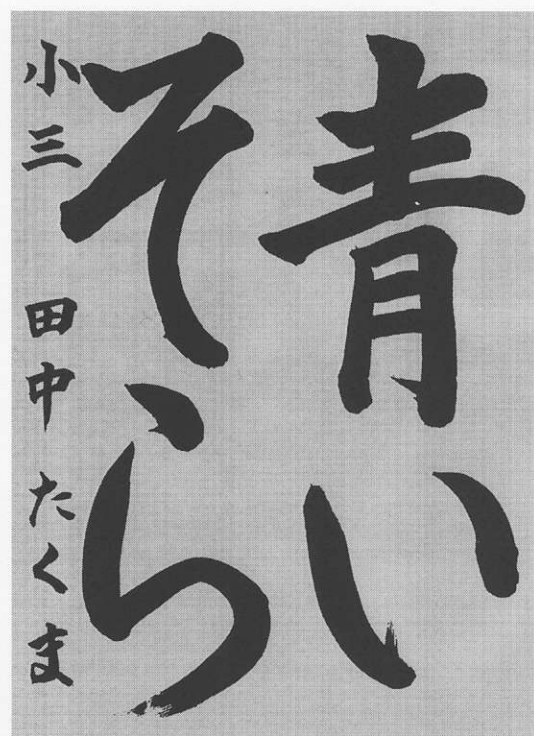 青い
そら
小三 田中 たくま